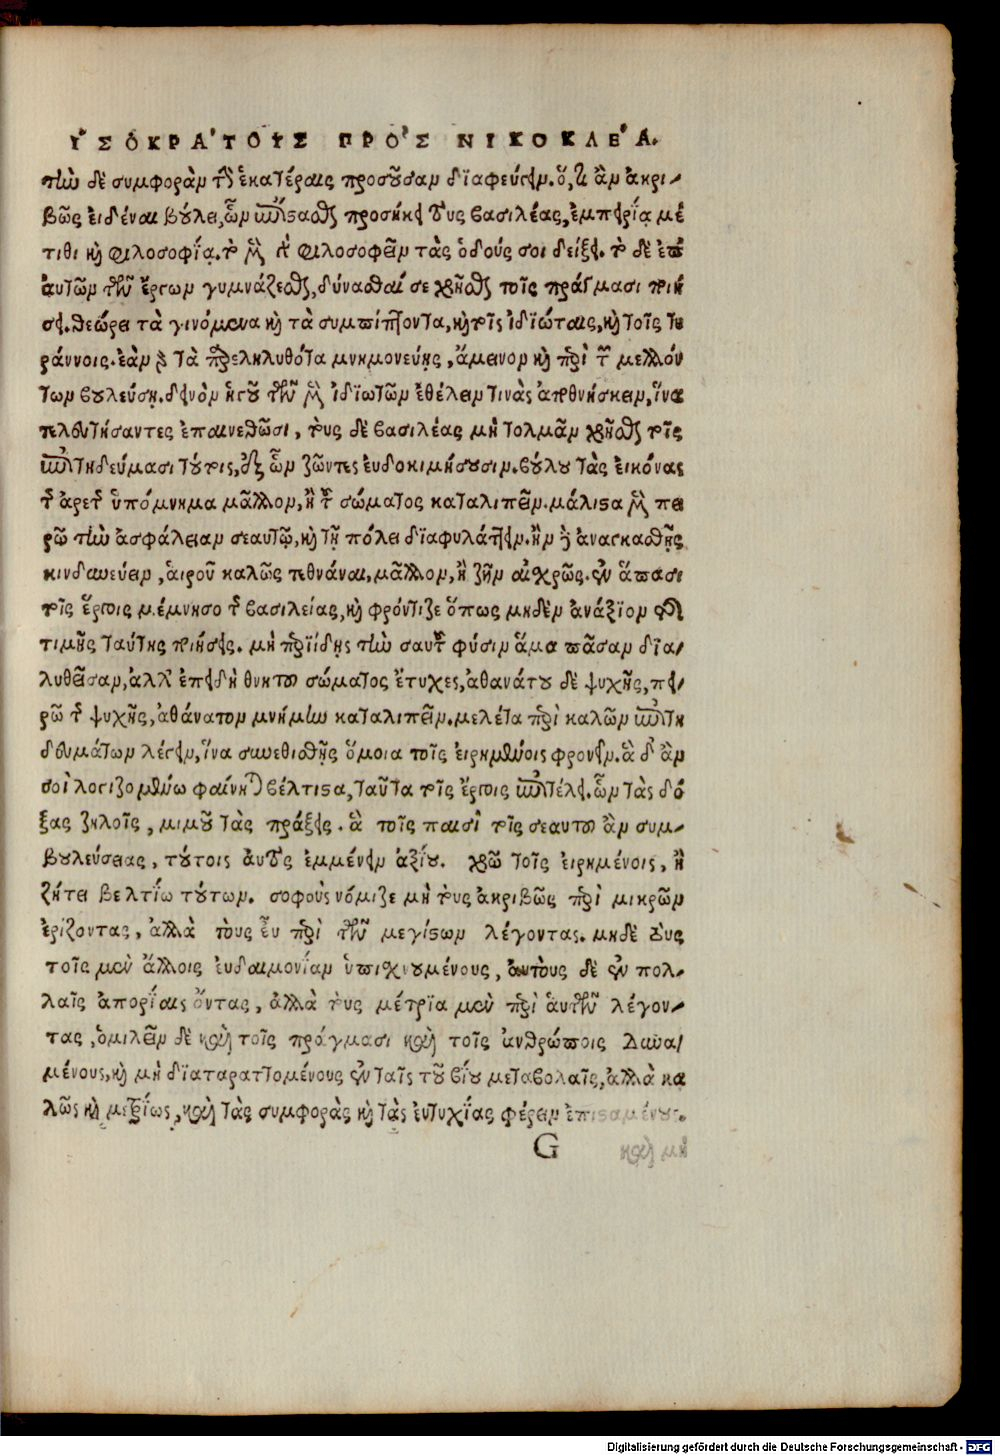 ἸΣΟΚΡΑ΄ΤΟΥΣ ΠΡΟ΄Σ ΝΙΚΟΚΛΕ΄Α.
τὴν δὲ συμφορὰν τὴν ἑκατέραις προσοῦσαν διαφεύγειν. ὅ, τι ἂν ἀκρι-
βῶς εἰδέναι βούλει, ὧν ἐπίστασθαι προσήκει τοὺς βασιλέας, ἐμπειρίᾳ μέ
τιθι καὶ φιλοσοφίᾳ. τὸ μὲν γὰρ φιλοσοφεῖν τὰς ὁδούς σοι δείξει. τὸ δὲ ἐπ'
αὐτῶν τῶν ἔργων γυμνάζεσθαι, δύνασθαί σε χρῆσθαι τοῖς πράγμασι ποιή
σει. θεώρει τὰ γινόμενα καὶ τὰ συμπίπτοντα, καὶ τοῖς ἰδιώταις, καὶ τοῖς τυ
ράννοις. ἐὰν γὰρ τὰ παρεληλυθότα μνημονεύῃς, ἄμεινον καὶ περὶ τῶν μελλόν
των βουλεύσῃ. δεινὸν ἡγοῦ τῶν μὲν ἰδιωτῶν ἐθέλειν τινὰς ἀποθνήσκειν, ἵνα
τελευτήσαντες ἐπαινεθῶσι, τοὺς δὲ βασιλέας μὴ τολμᾶν χρῆσθαι τοῖς
ἐπιτηδεύμασι τούτοις, ἐξ ὧν ζῶντες εὐδοκιμήσουσιν. βούλου τὰς εἰκόνας
τῆς ἀρετῆς ὑπόμνημα μᾶλλον, ἢ τοῦ σώματος καταλιπεῖν. μάλιστα μὲν πει
ρῶ τὴν ἀσφάλειαν σεαυτῷ, καὶ τῇ πόλει διαφυλάττειν. ἢν δὲ ἀναγκασθῇς
κινδυνεύειν, αἱροῦ καλῶς τεθνάναι, μᾶλλον, ἢ ζῆν αἰσχρῶς. ἐν ἅπασι
τοῖς ἔργοις μέμνησο τῆς βασιλείας, καὶ φρόντιζε ὅπως μηδὲν ἀνάξιον τῆς
τιμῆς ταύτης ποιήσεις. μὴ περιίδῃς τὴν σαυτοῦ φύσιν ἅμα πᾶσαν δια-
λυθεῖσαν, ἀλλ' ἐπειδὴ θνητοῦ σώματος ἔτυχες, ἀθανάτου δὲ ψυχῆς, πει-
ρῶ τῆς ψυχῆς, ἀθάνατον μνήμην καταλιπεῖν. μελέτα περὶ καλῶν ἐπιτη
δευμάτων λέγειν, ἵνα συνεθισθῇς ὅμοια τοῖς εἰρημένοις φρονεῖν. ἃ δ' ἂν
σοὶ λογιζομένῳ φαίνηται βέλτιστα, ταῦτα τοῖς ἔργοις ἐπιτέλει. ὧν τὰς δό
ξας ζηλοῖς, μιμοῦ τὰς πράξεις. ἃ τοῖς παισὶ τοῖς σεαυτοῦ ἂν συμ-
βουλεύσειας, τούτοις αὐτὸς ἐμμένειν ἀξίου. χρῶ τοῖς εἰρημένοις, ἢ
ζήτει βελτίω τούτων. σοφοὺς νόμιζε μὴ τοὺς ἀκριβῶς περὶ μικρῶν
ἐρίζοντας, ἀλλὰ τοὺς εὖ περὶ τῶν μεγίστων λέγοντας. μηδὲ τοὺς
τοῖς μὲν ἄλλοις εὐδαιμονίαν ὑπισχνουμένους, αὐτοὺς δὲ ἐν πολ-
λαῖς ἀπορίαις ὄντας, ἀλλὰ τοὺς μέτρια μὲν περὶ αὑτῶν λέγον-
τας, ὁμιλεῖν δὲ καὶ τοῖς πράγμασι καὶ τοῖς ἀνθρώποις δυνα-
μένους, καὶ μὴ διαταραττομένους ἐν ταῖς τοῦ βίου μεταβολαῖς, ἀλλὰ κα
λῶς καὶ μετρίως, καὶ τὰς συμφορὰς καὶ τὰς εὐτυχίας φέρειν ἐπισταμένους.
G καὶ μὴ
Digitalisierung gefördert durch die Deutsche Forschungsgemeinschaft - DFG